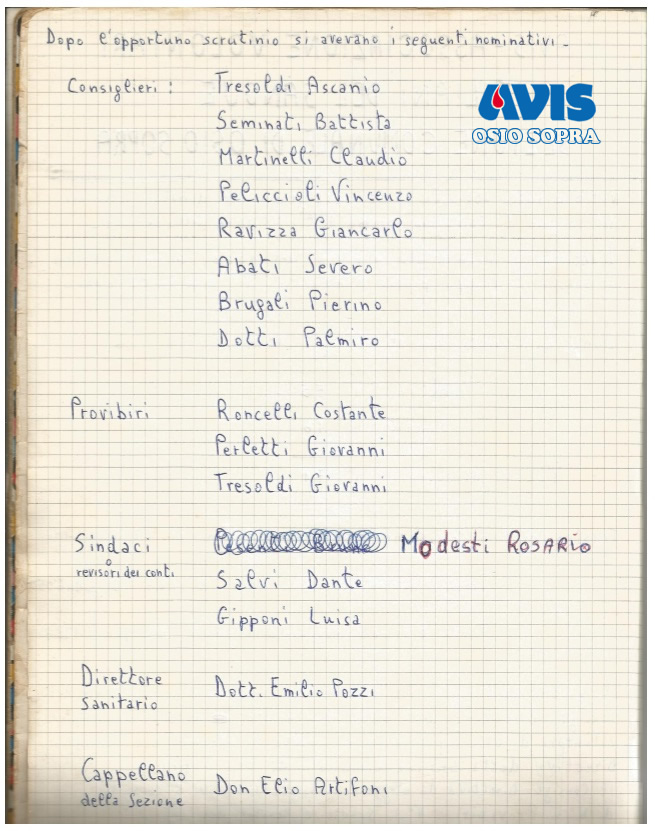 Dopo l'opportuno scrutinio si avevano i seguenti nominativi -
AVIS
OSIO SOPRA
Consiglieri : Tresoldi Ascanio
Seminati Battista
Martinelli Claudio
Peliccioli Vincenzo
Ravizza Giancarlo
Abati Severo
Brugali Pierino
Dotti Palmiro
Provibiri Roncelli Costante
Perletti Giovanni
Tresoldi Giovanni
Sindaci Modesti ROSARIO
o
revisori dei conti Salvi Dante
Gipponi Luisa
Direttore
sanitario Dott. Emilio Pozzi
Cappellano
della Sezione Don Elio Artifoni